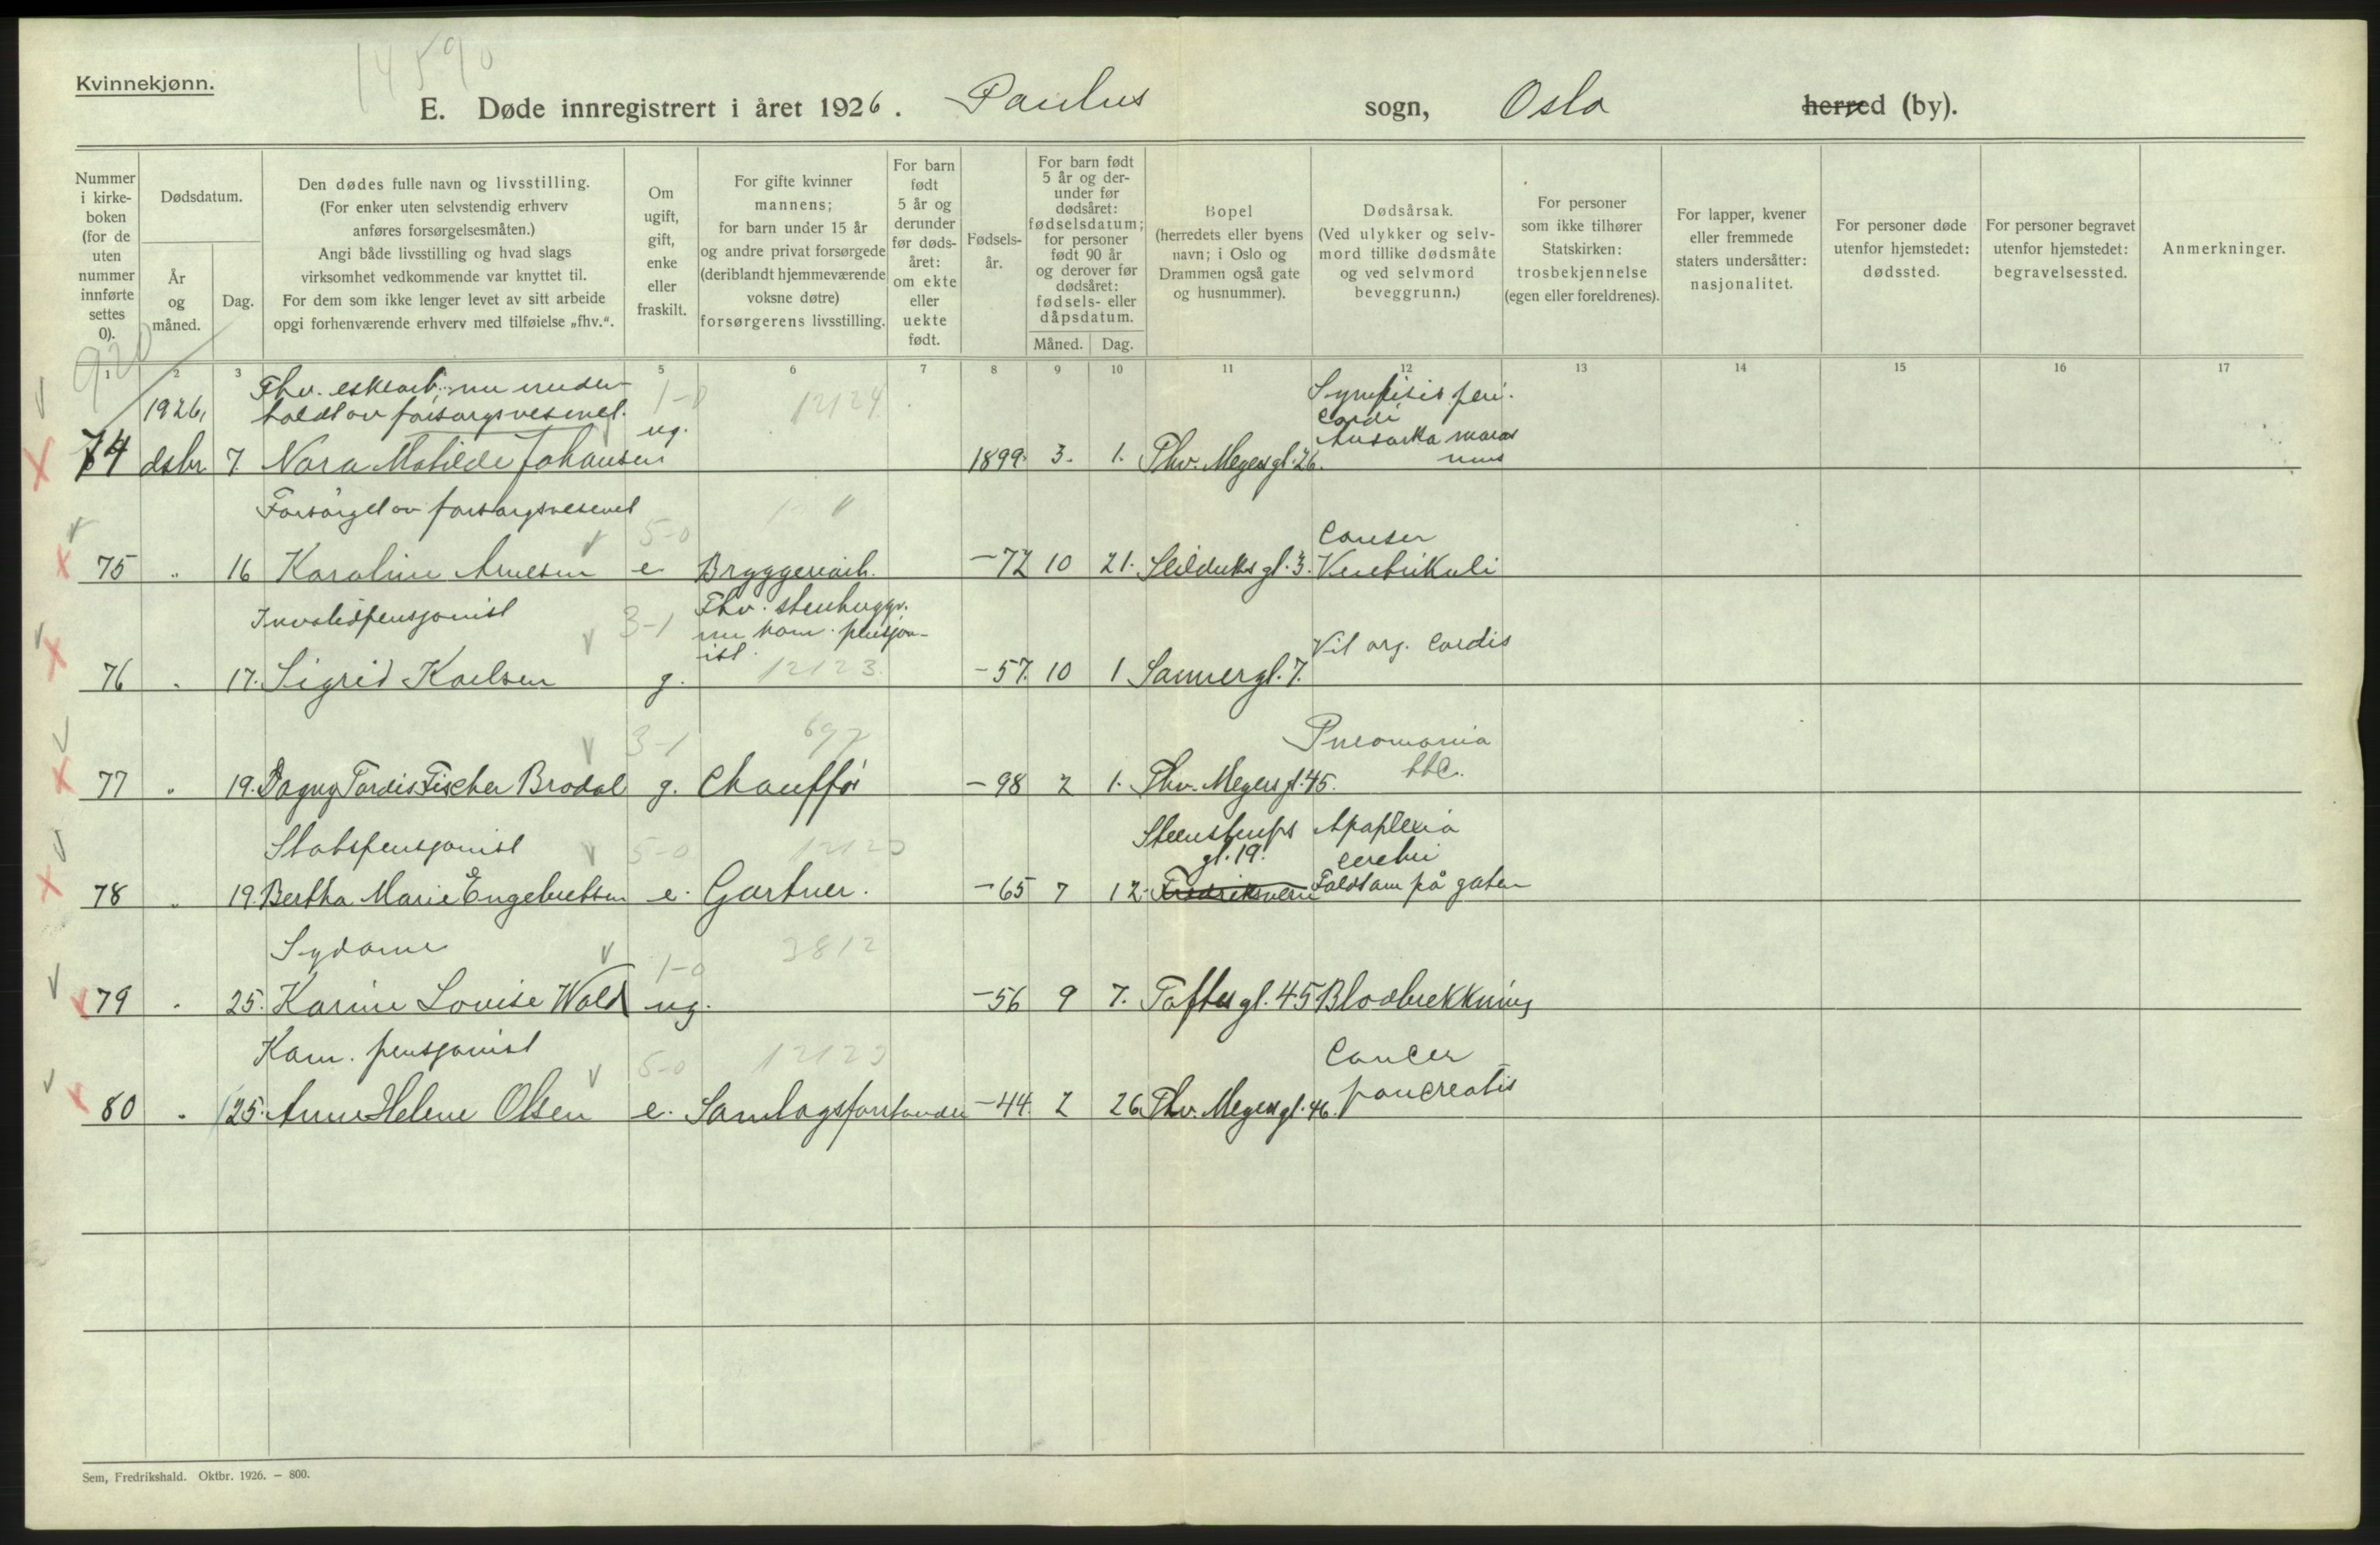 14590
Kvinnekjønn.
E. Døde innregistrert i året 1926. Paulus sogn, Oslo herred (by).
Nummer i kirkeboken (for de uten nummer innførte settes 0).
Dødsdatum.
År og måned.
Dag.
Den dødes fulle navn og livsstilling.
(For enker uten selvstendig erhverv
anføres forsørgelsesmåten.)
Angi både livsstilling og hvad slags
virksomhet vedkommende var knyttet til.
For dem som ikke lenger levet av sitt arbeide
opgi forhenværende erhverv med tilføielse „fhv.“.
Om ugift, gift, enke eller fraskilt.
For gifte kvinner
mannens;
for barn under 15 år
og andre privat forsørgede
(deriblandt hjemmeværende
voksne døtre)
forsørgerens livsstilling.
For barn født 5 år og derunder før dødsåret: om ekte eller uekte født.
Fødselsår.
For barn født 5 år og derunder før dødsåret: fødselsdatum; for personer født 90 år og derover før dødsåret: fødsels- eller dåpsdatum.
Måned. Dag.
Bopel
(herredets eller byens
navn; i Oslo og
Drammen også gate
og husnummer).
Dødsårsak.
(Ved ulykker og selvmord tillike dødsmåte
og ved selvmord
beveggrunn.)
For personer
som ikke tilhører
Statskirken:
trosbekjennelse
(egen eller foreldrenes).
For lapper, kvener
eller fremmede
staters undersåtter:
nasjonalitet.
For personer døde
utenfor hjemstedet:
dødssted.
For personer begravet
utenfor hjemstedet:
begravelsessted.
Anmerkninger.
1 2 3 5 6 7 8 9 10 11 12 13 14 15 16 17
Fhv. eskearb.; nu under- 1-0 12124 Symfisis peri-
1926, holdt av forsorgsvesenet. cordi
74 dsbr 7 Nora Matilde Johansen ug. 1899. 3. 1. Thv. Meyersgt. 26.
Forsørget av forsorgsvesenet 5-0 Canser
75 " 16 Karoline Arnesen e Bryggeriarb. -72 10 21. Seilduksgt. 3. Ventrikuli
Invalidpensjonist 3-1 Fhv. stenhugger.
nu kom. pensjon-
ist. 12123 Vit. org. Cordis
76 " 17. Sigrid Karlsen g. -57. 10 1 Sannergt. 7.
3-1 697 Pneomonia
tbc.
77 " 19. Dagny Tordis Fischer Brodal g. Chauffør -98 2 1. Thv. Meyersgt. 45.
Statspensjonist 5-0 12123 Steenstrups gt. 19. Apaplexia cerebri
78 " 19. Bertha Marie Engebretsen e. Gartner. -65 7 12. Fredriksvern Faldt om på gaten
Sydame 1-0 3812
79 " 25. Karine Louise Wold ug. -56 9 7. Toftesgt. 45 Blodbrekkning
Kom. pensjonist 5-0 12123 Cancer
80 " 25. Anne Helene Olsen e. Samlagsforstander -44. 2 26. Thv. Meyersgt. 46. pancreatis
Sem, Fredrikshald. Oktbr. 1926. — 800.